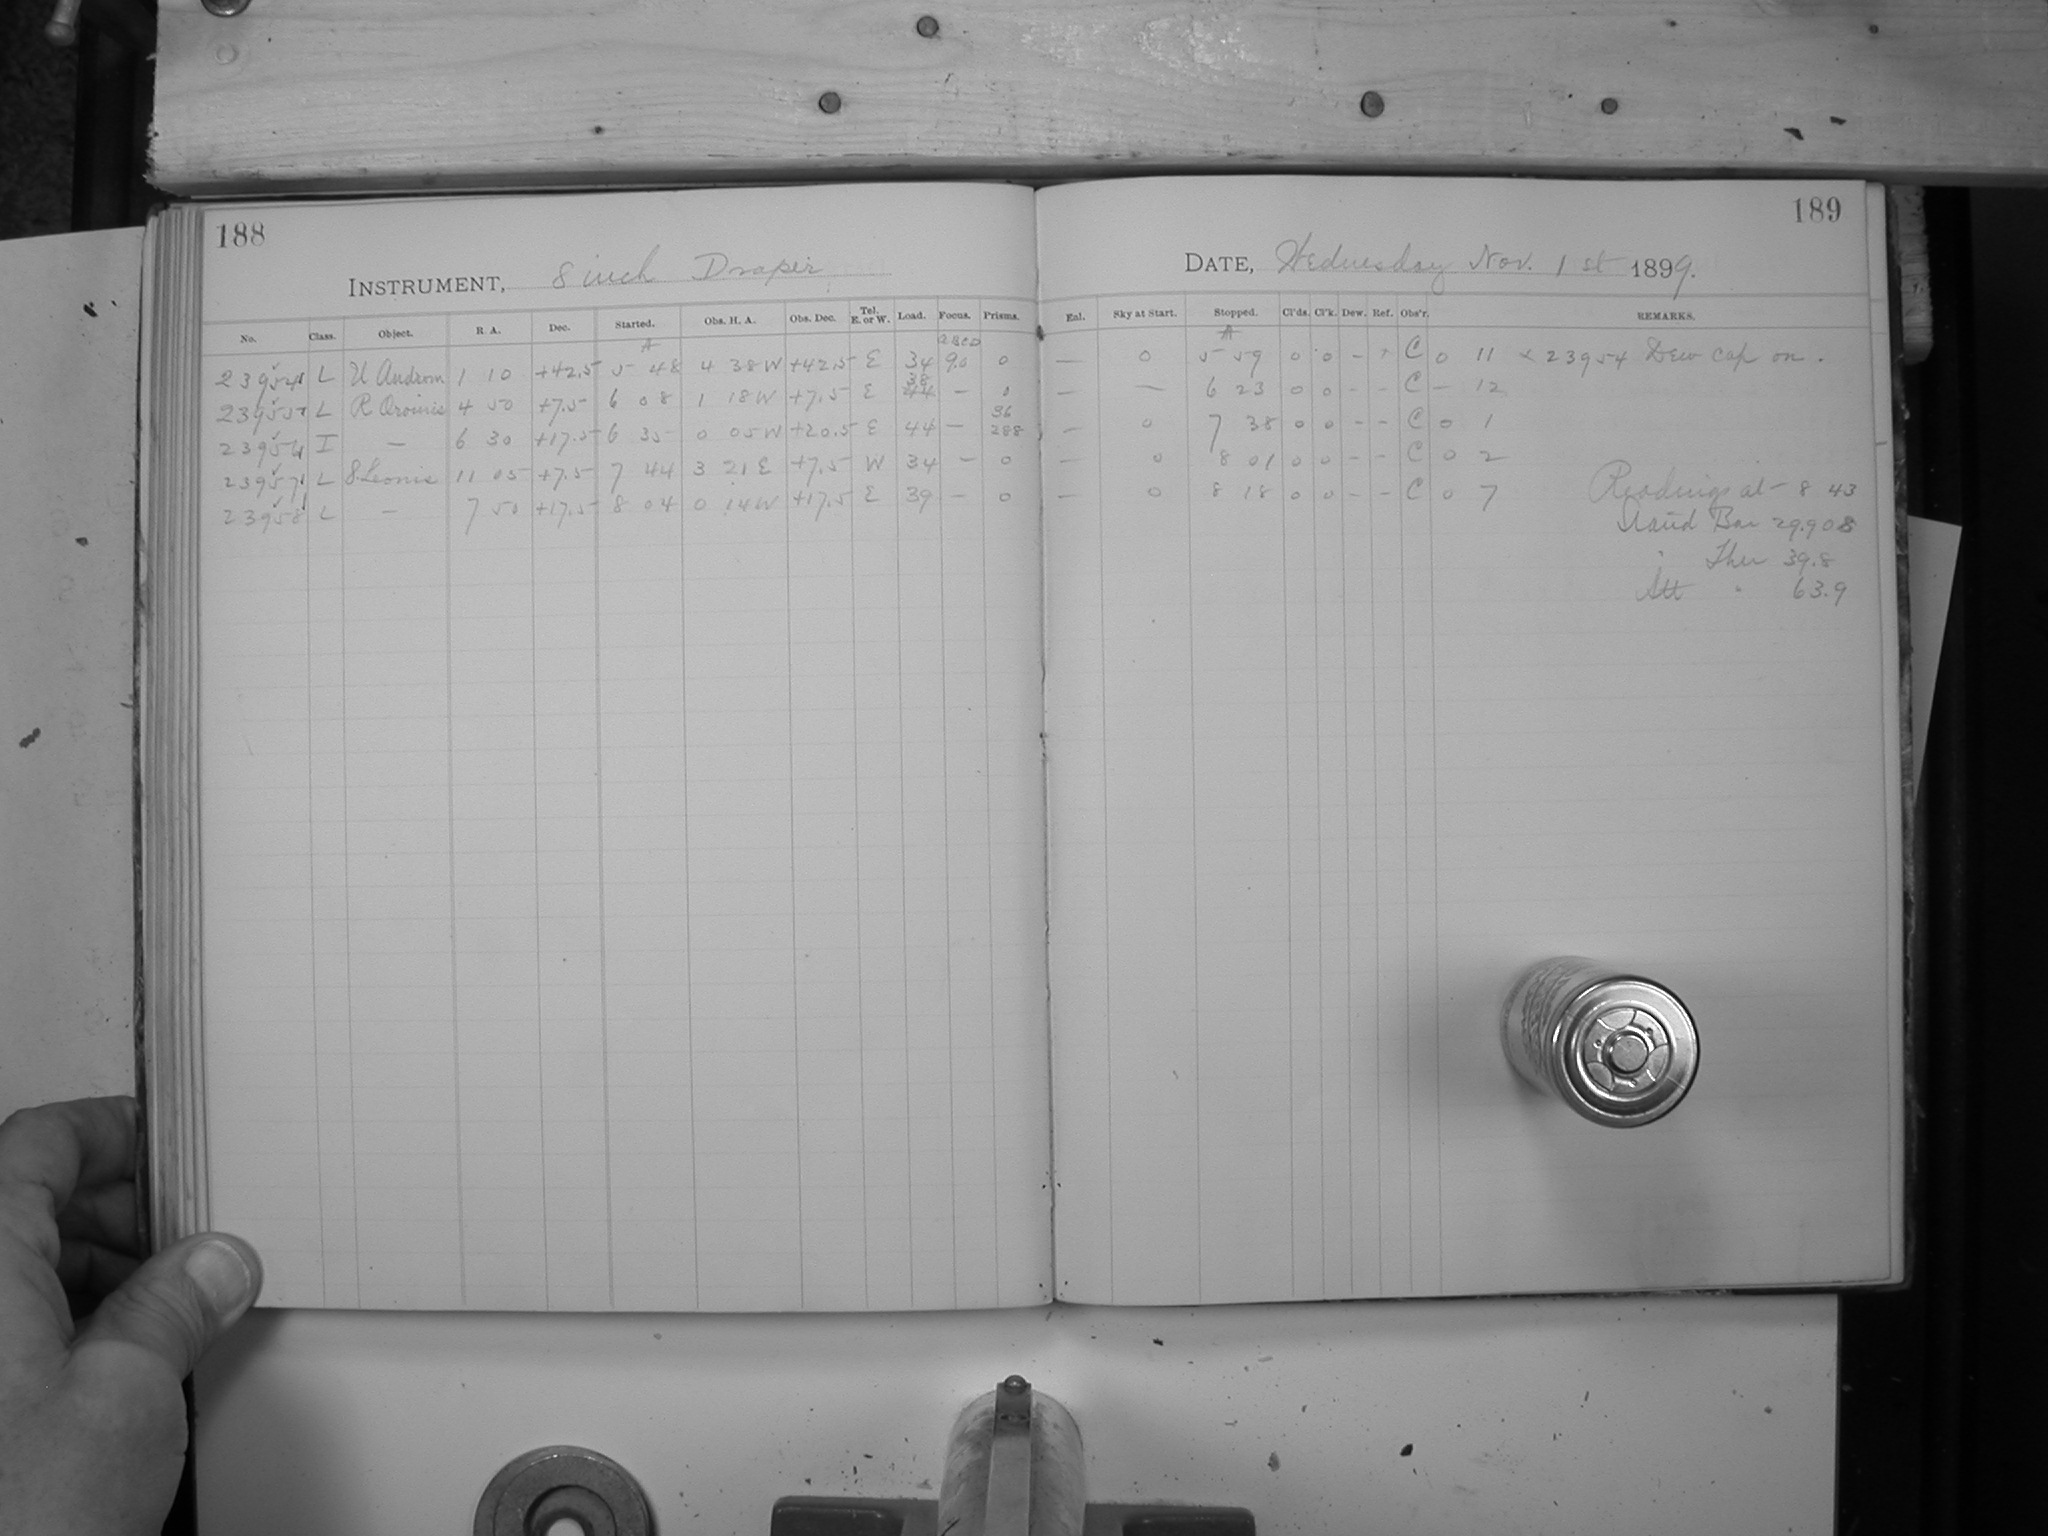 188
INSTRUMENT, 8 inch Draper
No. Class. Object. R. A. Dec. Started. Obs. H. A. Obs. Dec. Tel. E. or W. Load. Focus. Prisms.
23954 L U Androm 1 10 +42.5 5 48 4 38 W +42.5 E 34 9.0 0
23955 L R Orionis 4 50 +7.5 6 08 1 18 W +7.5 E 38 44 — 0
23956 I — 6 30 +17.5 6 35 0 05 W +20.5 E 44 — 36 288
23957 L S Leonis 11 05 +7.5 7 44 3 21 E +7.5 W 34 — 0
23958 L — 7 50 +17.5 8 04 0 14 W +17.5 E 39 — 0
189
DATE, Wednesday Nov. 1st 1899.
Enl. Sky at Start. Stopped. Cl'ds. Cl'k. Dew. Ref. Obs'r. REMARKS.
— 0 5 59 0 0 - + C 0 11 x 23954 Dew cap on.
— — 6 23 0 0 - - C — 12
— 0 7 38 0 0 - - C 0 1
— 0 8 01 0 0 - - C 0 2
— 0 8 18 0 0 - - C 0 7 Readings at — 8 43
Bar 29.908
" Ther 39.8
Att " 63.9